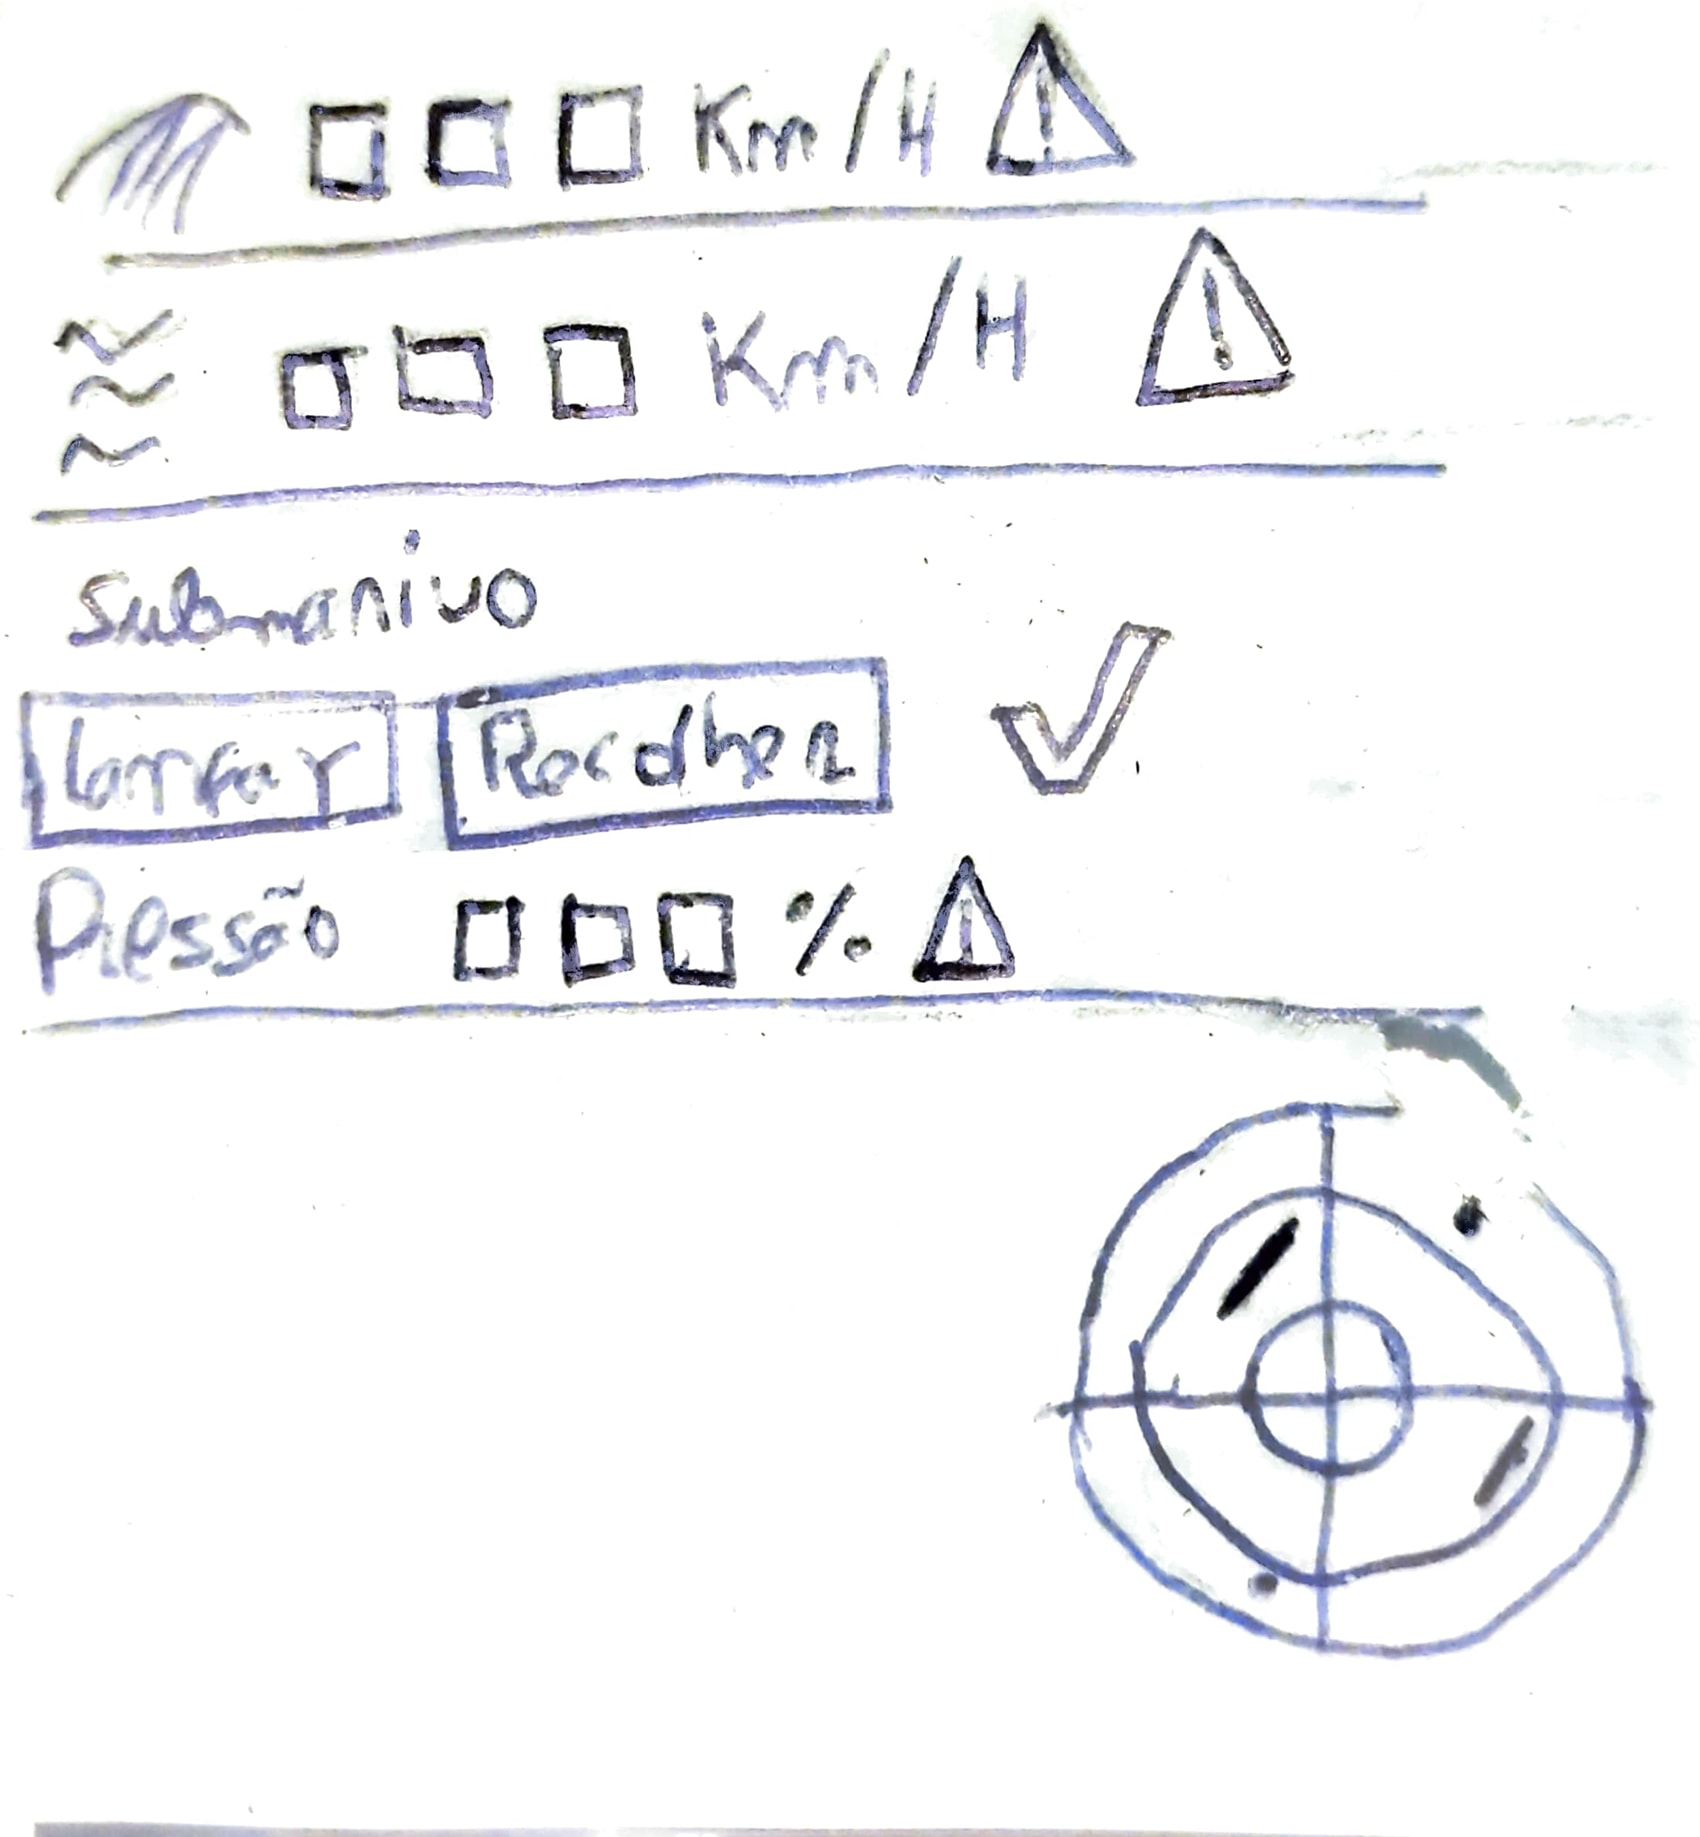 Km/H
Km/H
Submarivo
Lançar Recolher
Pressão %